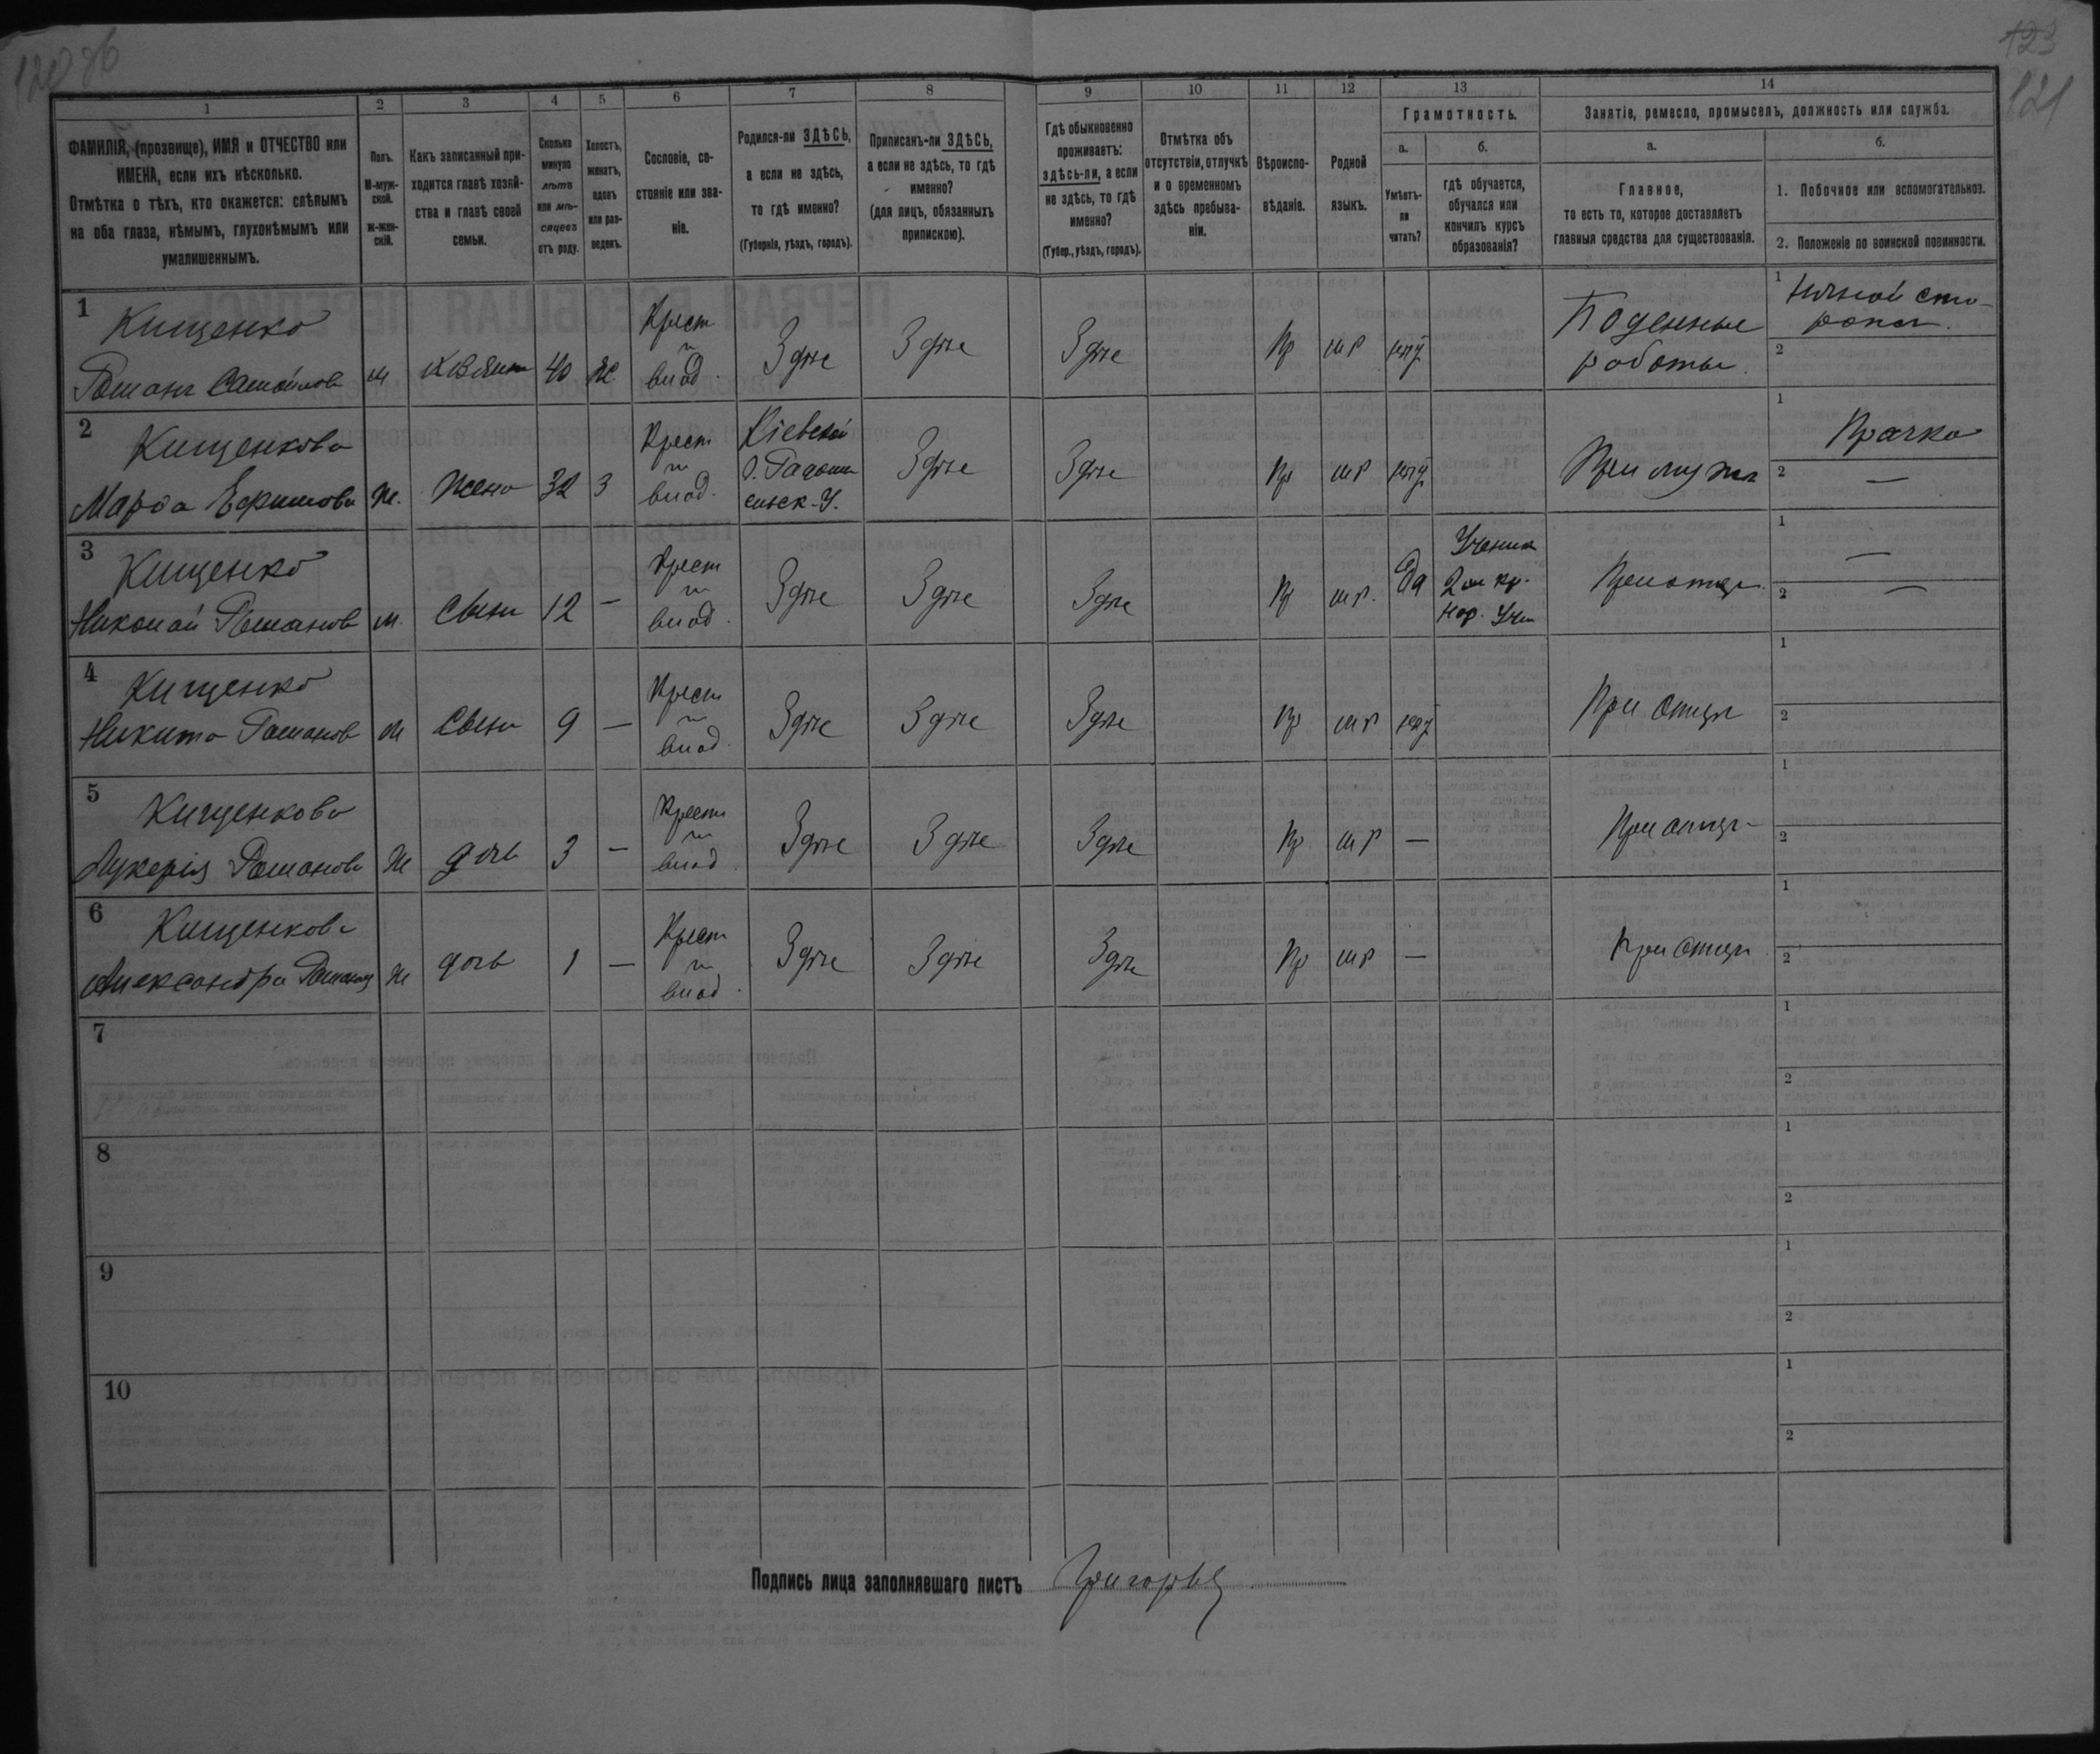 123
121
1 2 3 4 5 6 7 8 9 10 11 12 13 14
ФАМИЛІЯ, (прозвище), ИМЯ и ОТЧЕСТВО или
ИМЕНА, если ихъ нѣсколько.
Отмѣтка о тѣхъ, кто окажется: слѣпымъ
на оба глаза, нѣмымъ, глухонѣмымъ или
умалишеннымъ.
Полъ.
М-муж-
ской.
Ж-жен-
скій.
Какъ записанный при-
ходится главѣ хозяй-
ства и главѣ своей
семьи.
Сколько
минуло
лѣтъ
или мѣ-
сяцевъ
отъ роду.
Холостъ,
женатъ,
вдовъ
или раз-
веденъ.
Сословіе, со-
стояніе или зва-
ніе.
Родился-ли ЗДѢСЬ,
а если не здѣсь,
то гдѣ именно?
(Губернія, уѣздъ, городъ).
Приписанъ-ли ЗДѢСЬ,
а если не здѣсь, то гдѣ
именно?
(для лицъ, обязанныхъ
припискою).
Гдѣ обыкновенно
проживаетъ:
здѣсь-ли, а если
не здѣсь, то гдѣ
именно?
(Губер., уѣздъ, городъ).
Отмѣтка объ
отсутствіи, отлучкѣ
и о временномъ
здѣсь пребыва-
ніи.
Вѣроиспо-
вѣданіе.
Родной
языкъ.
Грамотность.
а.
Умѣетъ-
ли
читать?
б.
гдѣ обучается,
обучался или
кончилъ курсъ
образованія?
Занятіе, ремесло, промыселъ, должность или служба.
а.
Главное,
то есть то, которое доставляетъ
главныя средства для существованія.
б.
1. Побочное или вспомогательное.
2. Положеніе по воинской повинности.
1
Кищенко
Романъ
м
40
Ж.
Крест
и
влад.
Здѣс
Здѣс
Здѣс
Пр
мр
нѣт
Поденные
работы.
1
2
2
Кищенкова
Марфа Ефимова
Ж.
Жена
32
З
Крест
и
влад.
Кіевской
Здѣс
Здѣс
Пр
мр
нѣт
При мужѣ
1
Прачка
2
—
3
Кищенко
Николай Романов
м.
Сынъ
12
—
Крест
и
влад.
Здѣс
Здѣс
Здѣс
Пр
мр.
Да
Ученик
При отцѣ
1
—
2
—
4
Кищенко
Никита Романов
М
Сынъ
9
—
Крест
и
влад.
Здѣс
Здѣс
Здѣс
Пр
мр
нѣт
При отцѣ
1
2
5
Кищенкова
Лукерія Романова
Ж
дочь
3
—
Крест
и
влад
Здѣс
Здѣс
Здѣс
Пр
мр
—
При отцѣ
1
2
6
Кищенкова
Александра
Ж
дочь
1
—
Крест
и
влад.
Здѣс
Здѣс
Здѣс
Пр
мр
—
При отцѣ
1
2
7
1
2
8
1
2
9
1
2
10
1
2
Подпись лица заполнявшаго листъ Григорьев